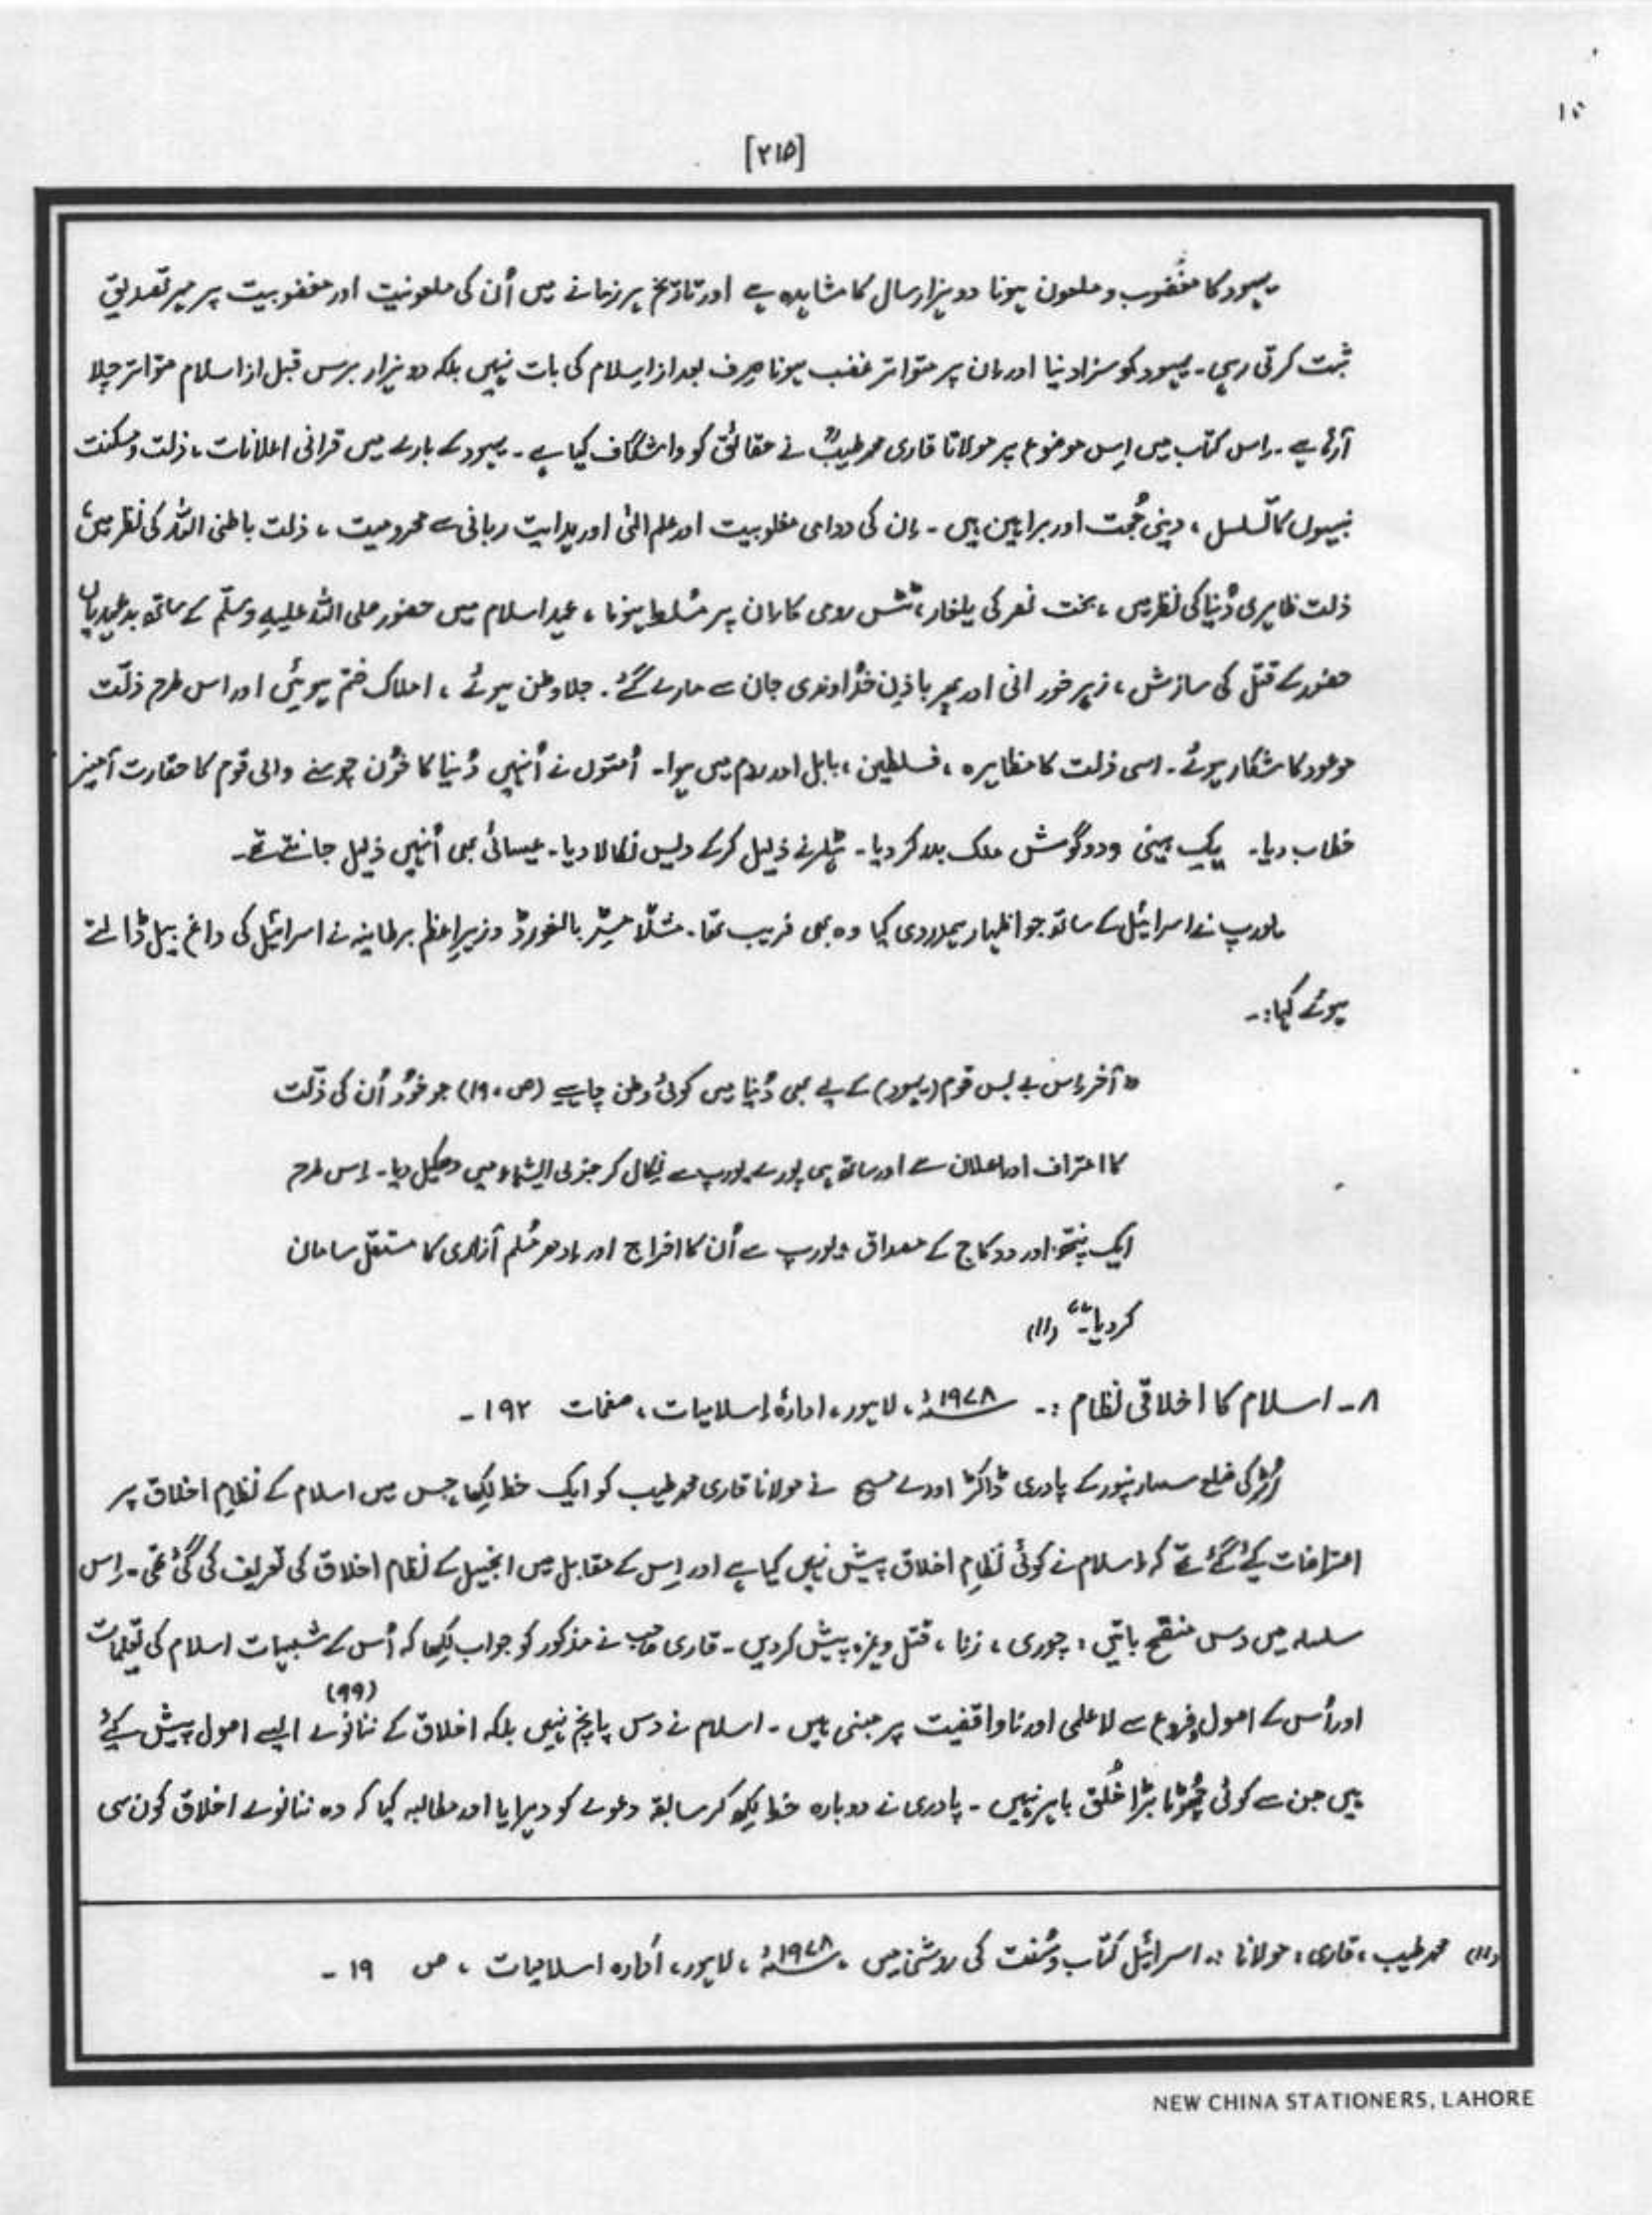 [۲۱۵]
یہود کا مغضوب و ملعون ہونا دو ہزار سال کا مشاہدہ ہے اور تاریخ ہر زمانے میں اُن کی ملعونیت اور مغضوبیت پر مہر تصدیق
ثبت کرتی رہی۔ یہود کو سزا دینا اور ان پر متواتر غضب ہونا صرف بعد از اسلام کی بات نہیں بلکہ دو ہزار برس قبل از اسلام متواتر چلا
آرہا ہے۔ اس کتاب میں اِس موضوع پر مولانا قاری محمد طیبؒ نے حقائق کو واشگاف کیا ہے۔ یہود کے بارے میں قرانی اعلانات، ذلت و مسکنت
نبیوں کا تسلسل، دینی حُجت اور براہین ہیں۔ اِن کی دوامی مغلوبیت اور علم الٰہی اور ہدایت ربانی سے محرومیت، ذلت باطنی اللہ کی نظر میں،
ذلت ظاہری دُنیا کی نظر میں، بخت نصر کی یلغار، ٹٹس رومی کا ان پر مُسلط ہونا، عہد اسلام میں حضور صلی اللہ علیہِ وسلّم کے ساتھ بد عہدیاں
حضور کے قتل کی سازش، زہر خورانی اور پھر باذنِ خُداوندی جان سے مارے گئے۔ جلا وطن ہوئے، املاک ختم ہوئیں اور اس طرح ذلّت
موعود کا شکار ہوئے۔ اسی ذلت کا مظاہرہ، فسلطین، بابل اور روم میں ہوا۔ اُمتوں نے اُنہیں دُنیا کا خُون چوسنے والی قوم کا حقارت آمیز
خطاب دیا۔ یک بینی ودوگوش ملک بدر کر دیا۔ ہٹلر نے ذلیل کرکے دیس نکالا دیا۔ عیسائی بھی اُنہیں ذلیل جانتے تھے۔
یورپ نے اسرائیل کے ساتھ جو اظہار ہمدردی کیا وہ بھی فریب تھا۔ مثلًا مسٹر بالفورڈ وزیرِاعظم برطانیہ نے اسرائیل کی داغ بیل ڈالتے
ہوئے کہا:۔
"آخر اِس بے بس قوم (یہود) کے لیے بھی دُنیا میں کوئی وطن چاہیے (ص ۱۹۰) جو خُود اُن کی ذلّت
کا اعتراف اور اعلان ہے اور ساتھ ہی پورے یورپ سے نکال کر جنوبی ایشیاء میں دھکیل دیا۔ اِس طرح
ایک پنتھ اور دو کاج کے مصداق یورپ سے اُن کا اخراج اور ادھر مُسلم آزاری کا مستقل سامان
کر دیا۔" (۱۱)
۸۔ اسلام کا اخلاقی نظام :۔ ۱۹۷۸ء، لاہور، ادارۂ اسلامیات، صفحات ۱۹۲۔
رُڑکی ضلع سہارنپور کے پادری ڈاکٹر اودے مسیح نے مولانا قاری محمد طیب کو ایک خط لکھا جس میں اسلام کے نظامِ اخلاق پر
اعتراضات کیے گئے تھے کہ اسلام نے کوئی نظامِ اخلاق پیش نہیں کیا ہے اور اِس کے مقابل میں انجیل کے نظام اخلاق کی تعریف کی گئی تھی۔ اِس
سلسلہ میں دس منقح باتیں: چوری، زنا، قتل وغیرہ پیش کردیں۔ قاری صاحب نے مذکور کو جواب لکھا کہ اُس کے شبہات اسلام کی تعلیمات
اور اُس کے اصول وفروع سے لاعلمی اور ناواقفیت پر مبنی ہیں۔ اسلام نے دس پانچ نہیں بلکہ اخلاق کے ننانوے (۹۹) ایسے اصول پیش کیے
ہیں جن سے کوئی چھوٹا بڑا خُلق باہر نہیں۔ پادری نے دوبارہ خط لکھ کر سابقہ دعوے کو دہرایا اور مطالبہ کیا کہ وہ ننانوے اخلاق کون سی
(۱۱) محمد طیب، قاری، مولانا :۔ اسرائیل کتاب و سُنت کی روشنی میں، ۱۹۷۸ء، لاہور، ادارہ اسلامیات، ص ۱۹۔
NEW CHINA STATIONERS, LAHORE